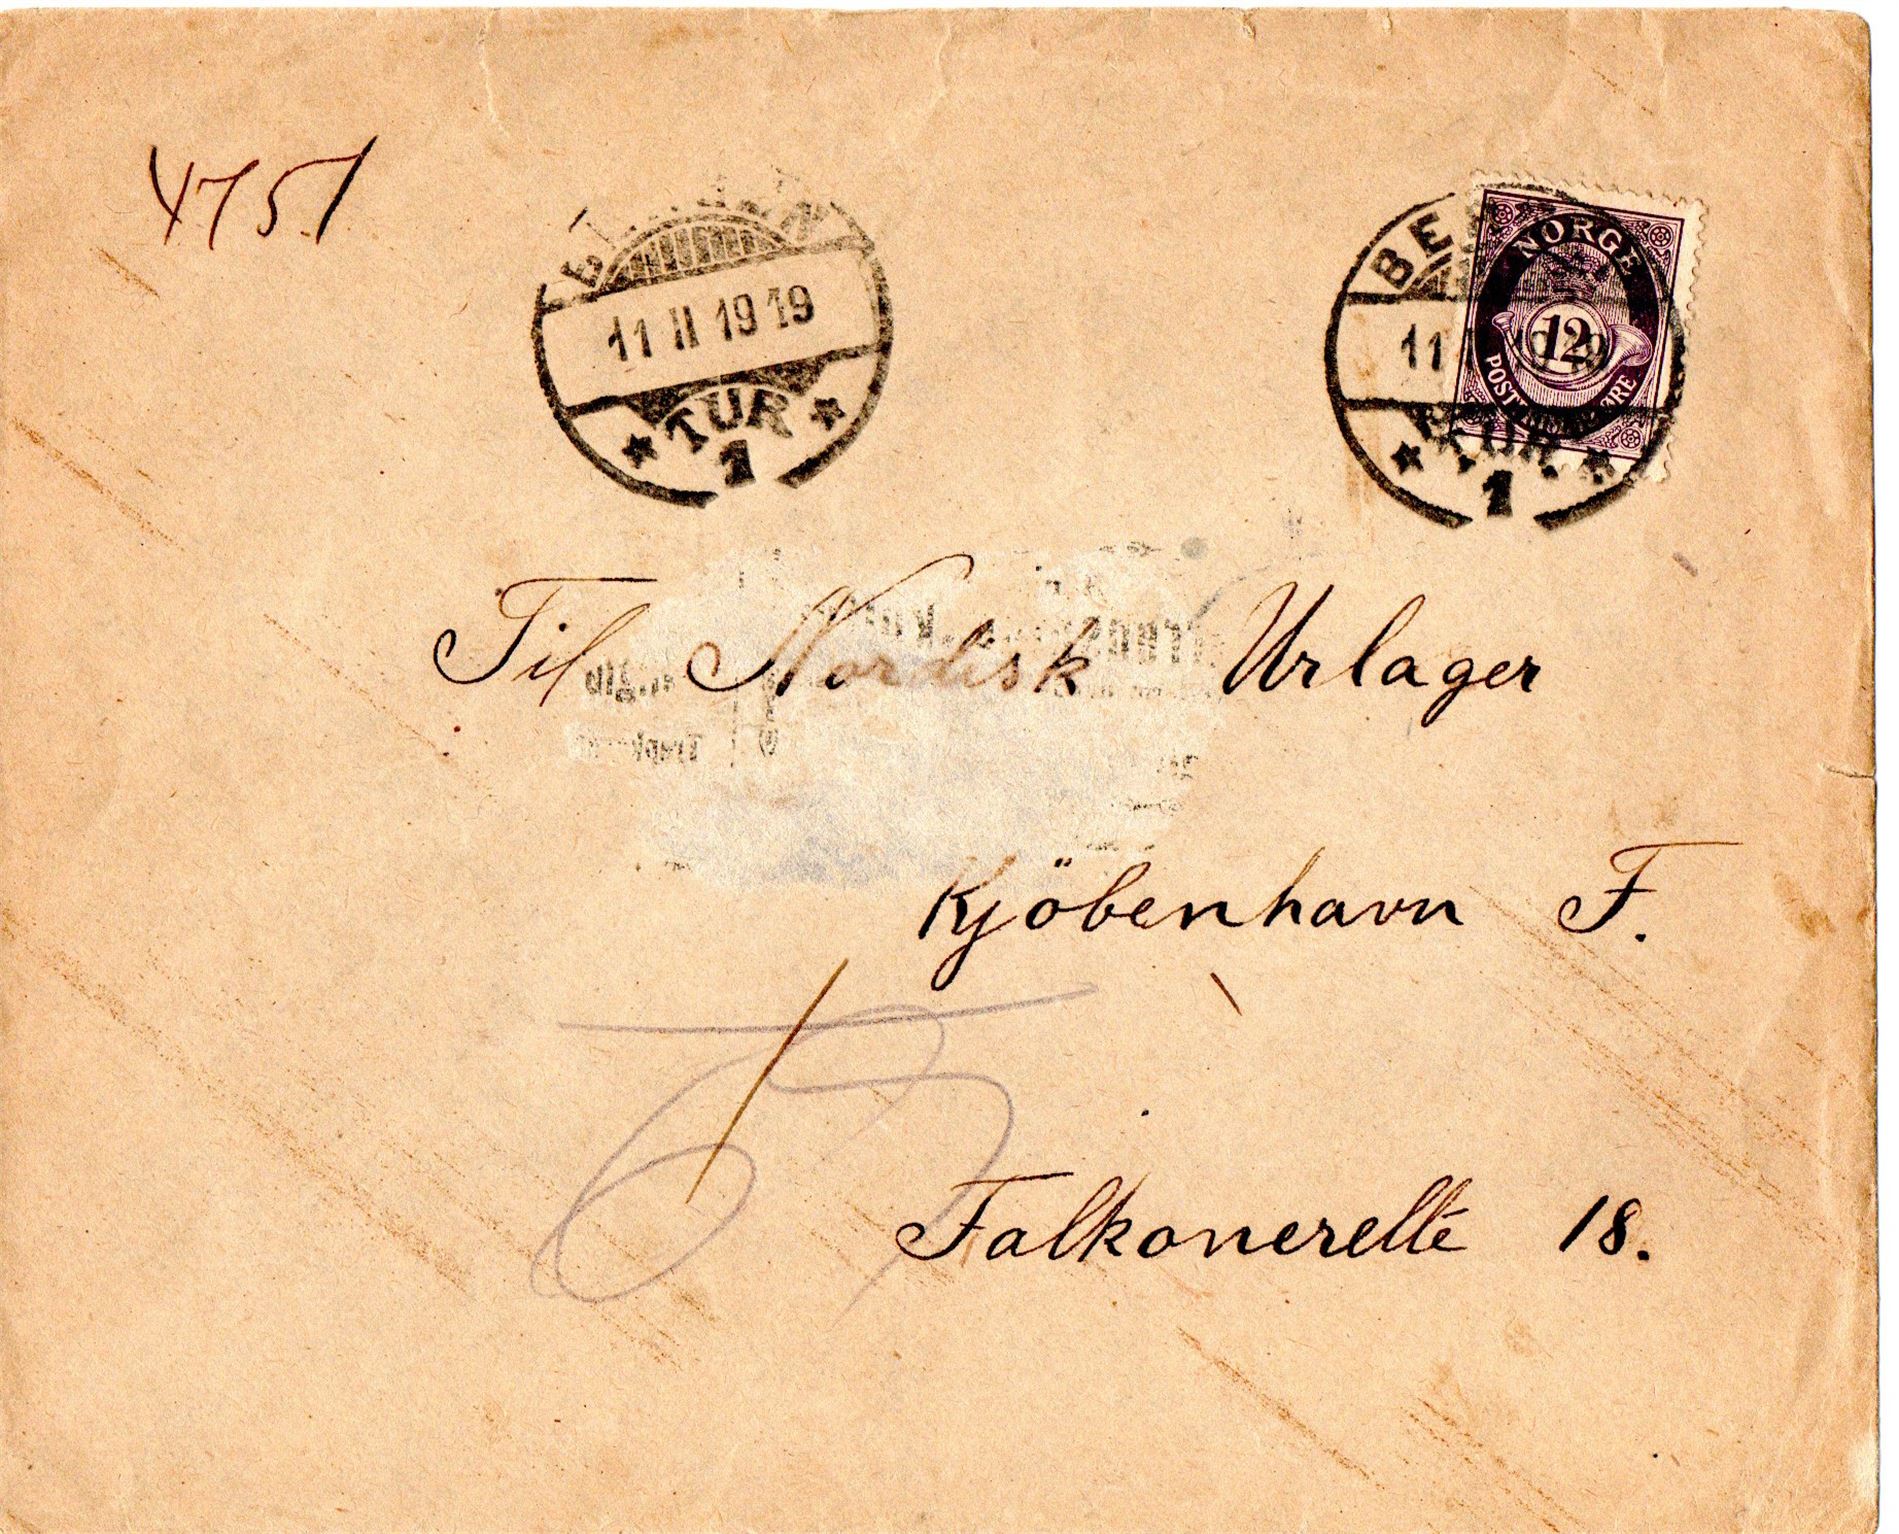 4751
BERGEN
11 II 1919
TUR
1
BE
11
TUR
1
NORGE
12
POST
ØRE
Til Nordisk Urlager
Kjöbenhavn F.
Falkonerellé 18.